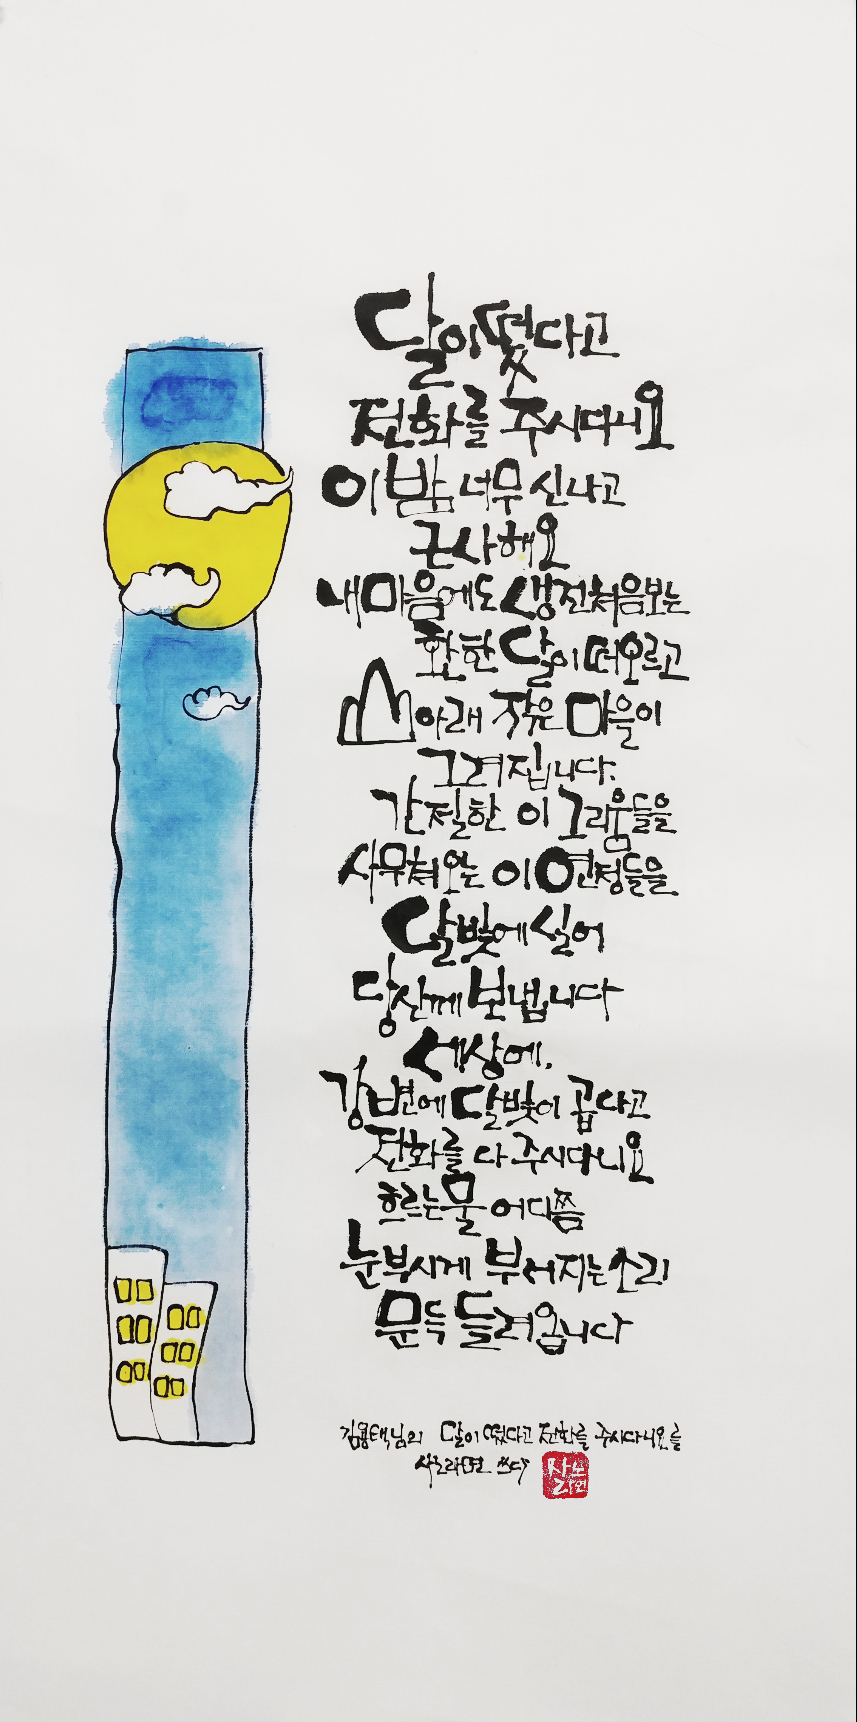 달이 떴다고
전화를 주시다니요
이 밤 너무 신나고
근사해요
내 마음에도 생전 처음 보는
환한 달이 떠오르고
아래 작은 마을이
그려집니다.
간절한 이 그리움들을
사무쳐오는 이 연정들을
달빛에 실어
당신께 보냅니다
세상에,
강변에 달빛이 곱다고
전화를 다 주시다니요
흐르는 물 어디쯤
눈부시게 부서지는 소리
문득 들려옵니다
김용택님의 달이 떴다고 전화를 주시다니요를
사노라면 쓰다
사노라면